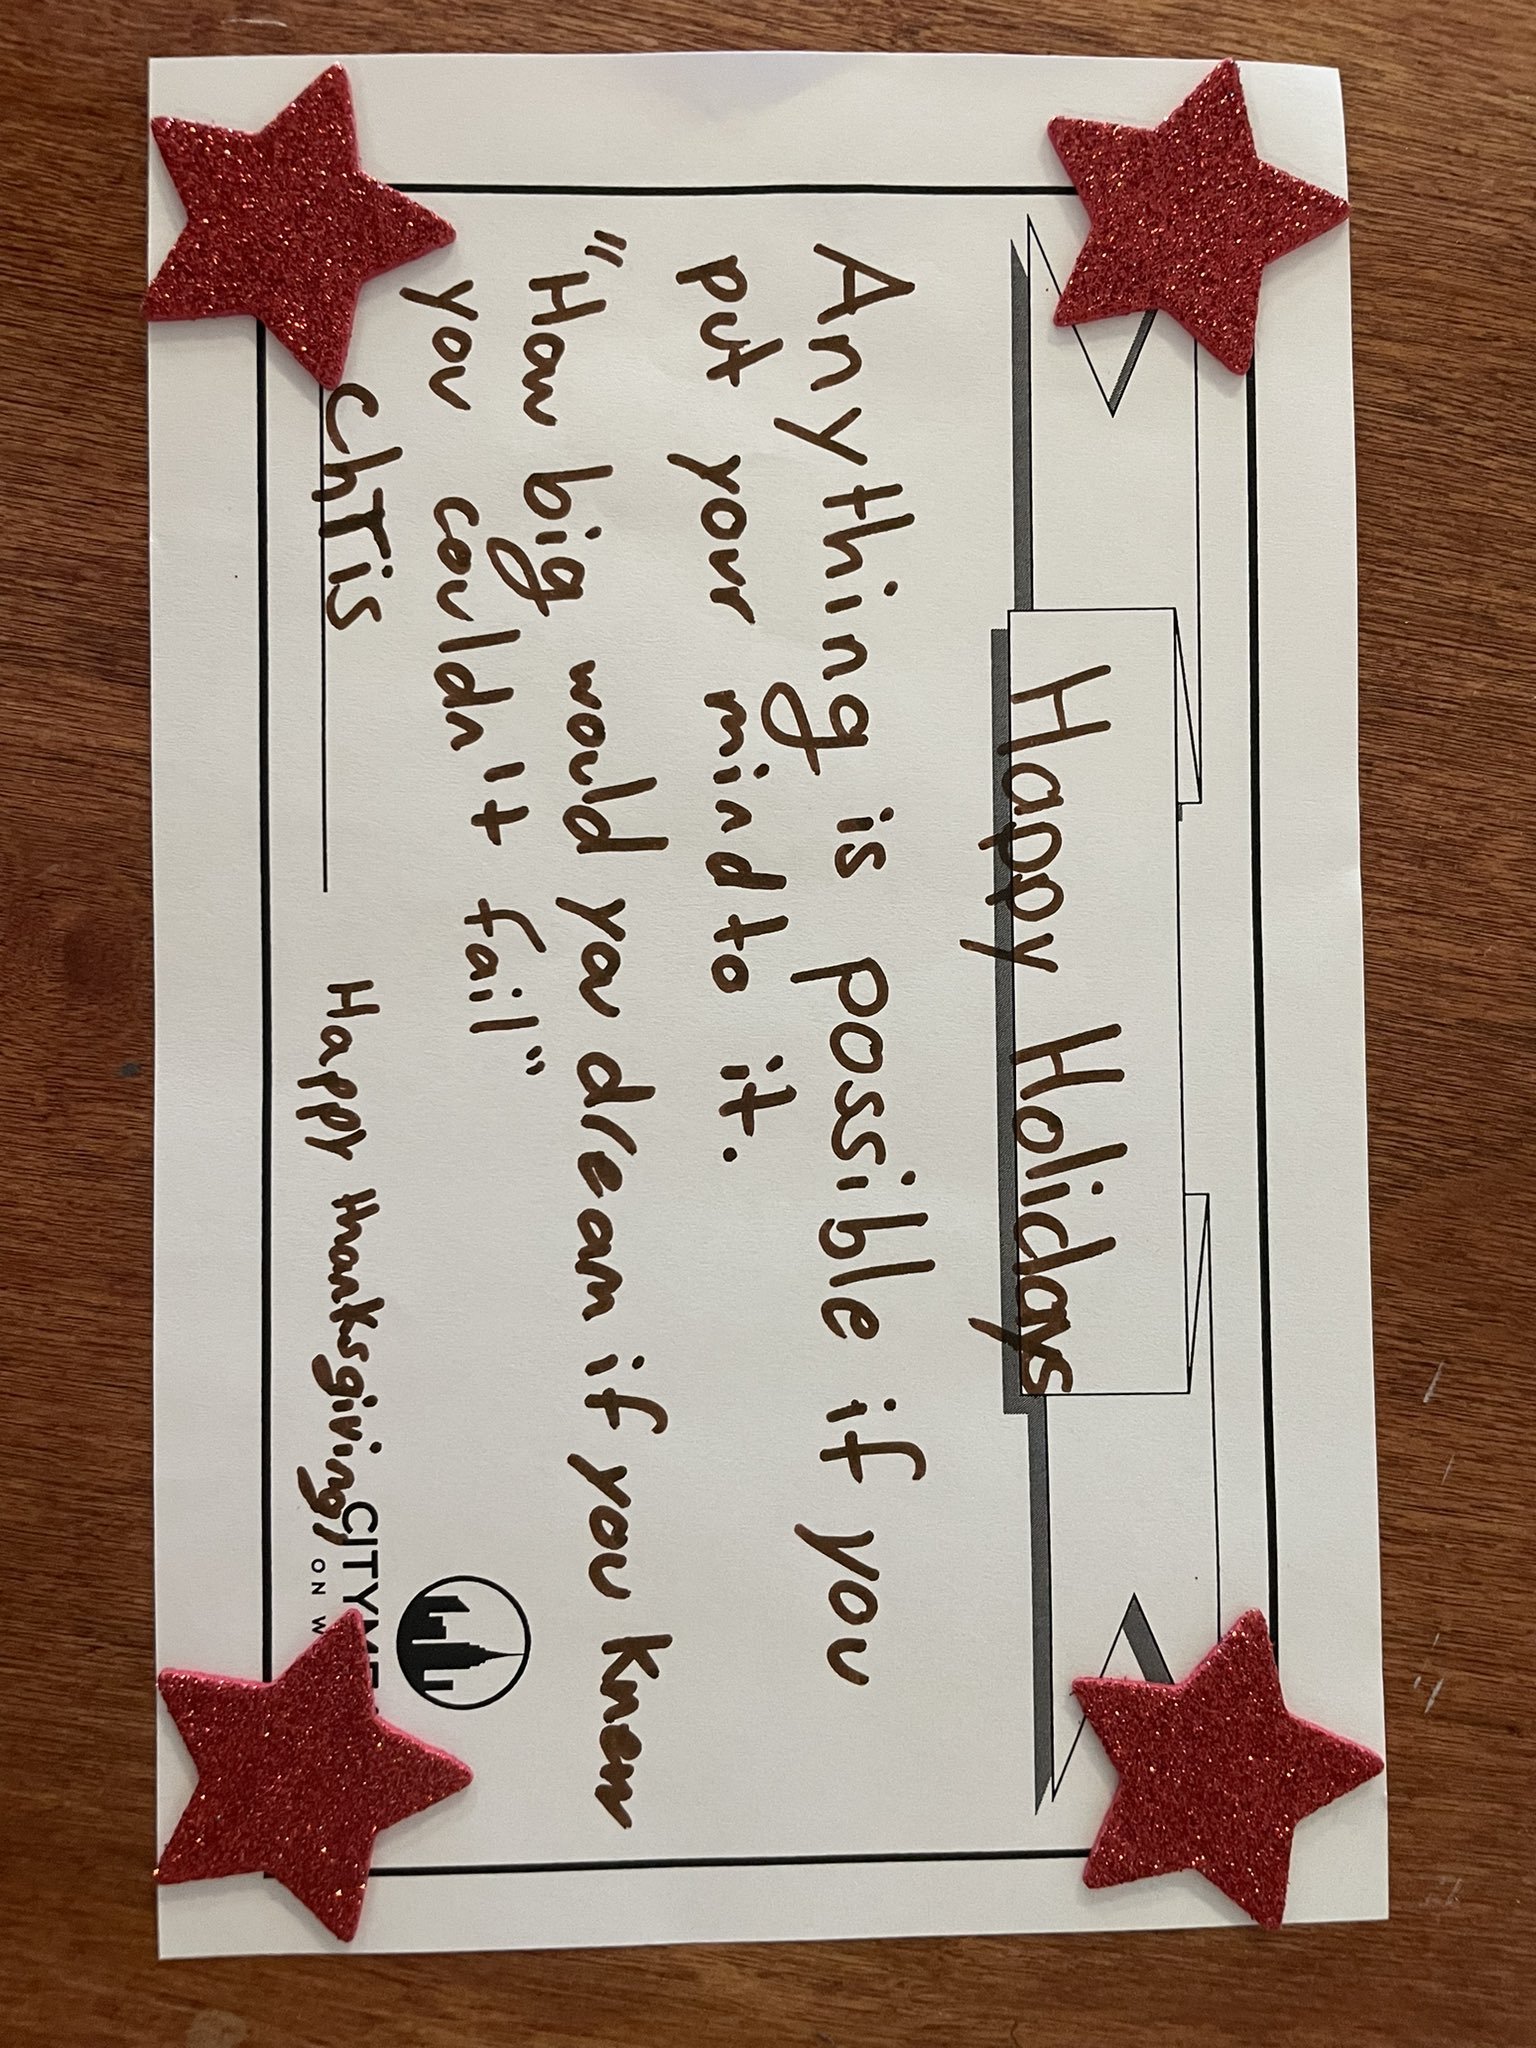 Happy Holidays
Anything is possible if you
put your mind to it.
"How big would you dream if you knew
you couldn't fail"
Chris
Happy thanksgiving,
CITYME
ON W